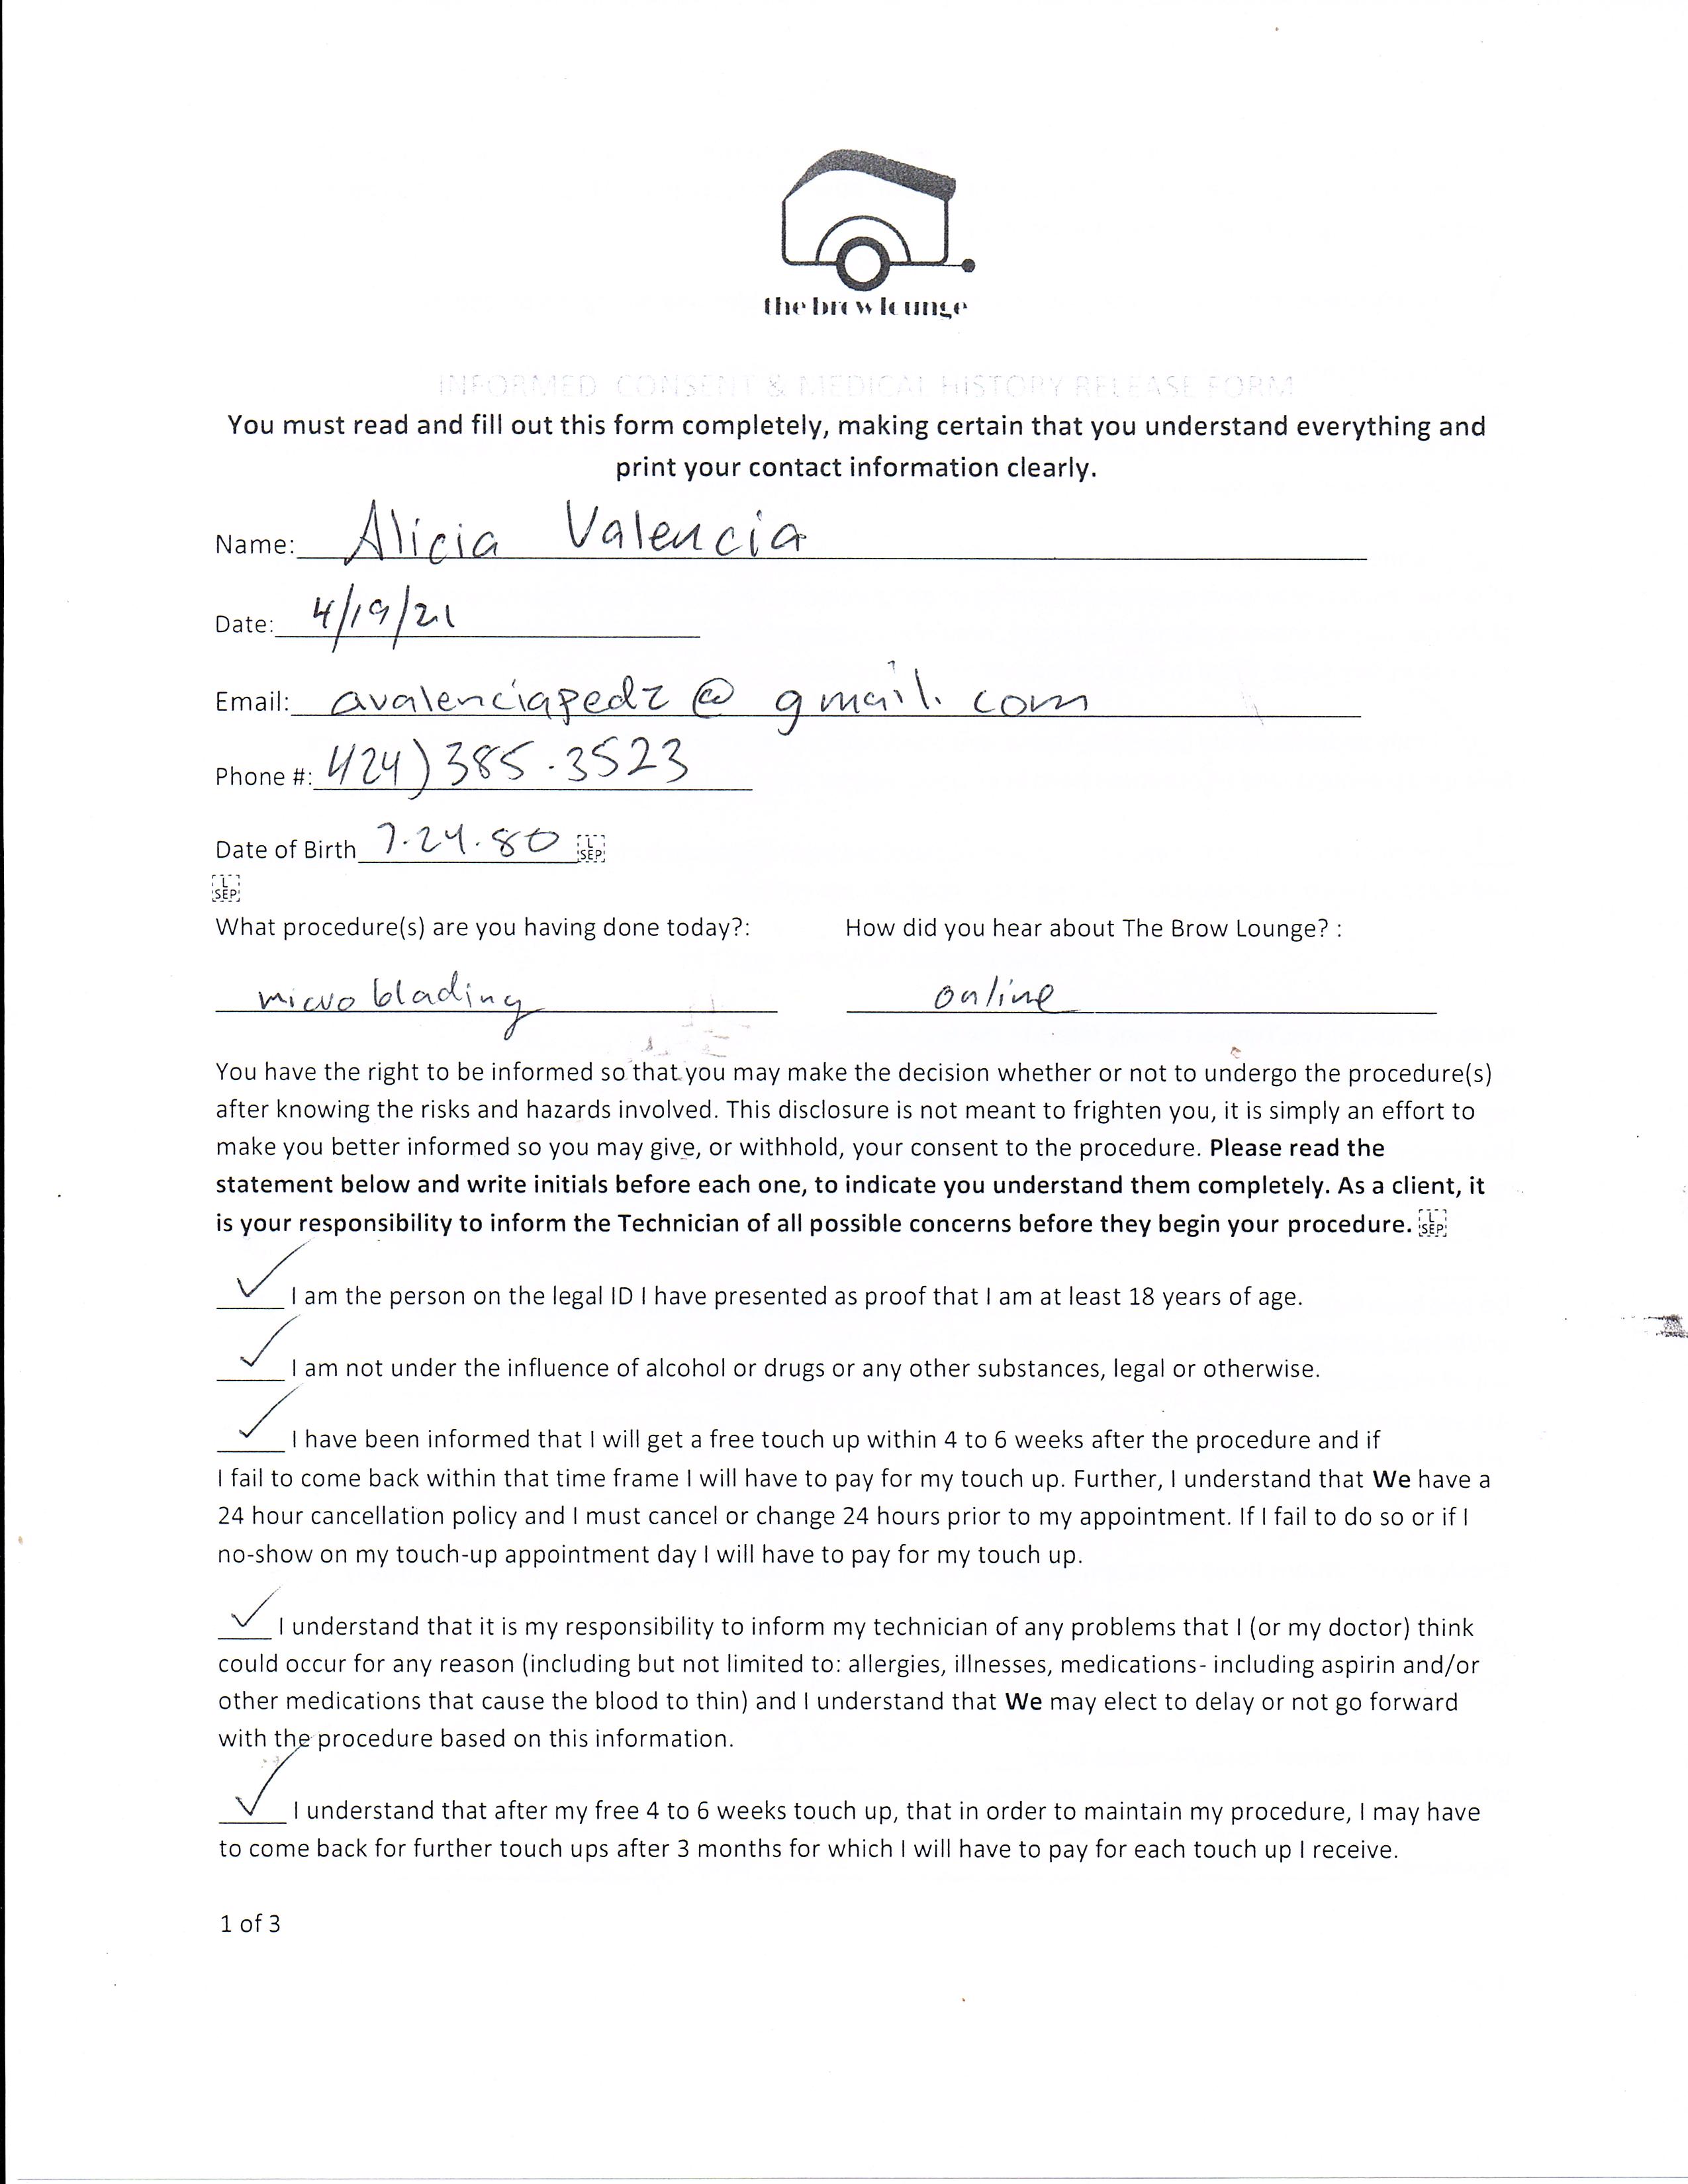 the brow lounge
INFORMED CONSENT & MEDICAL HISTORY RELEASE FORM
You must read and fill out this form completely, making certain that you understand everything and
print your contact information clearly.
Name: Alicia Valencia
Date: 4/19/21
Email: avalenciapedz@gmail.com
Phone #: 424) 385.3523
Date of Birth 7.24.80 L SEP
L SEP
What procedure(s) are you having done today?: How did you hear about The Brow Lounge? :
micro blading online
You have the right to be informed so that you may make the decision whether or not to undergo the procedure(s)
after knowing the risks and hazards involved. This disclosure is not meant to frighten you, it is simply an effort to
make you better informed so you may give, or withhold, your consent to the procedure. Please read the
statement below and write initials before each one, to indicate you understand them completely. As a client, it
is your responsibility to inform the Technician of all possible concerns before they begin your procedure. L SEP
✓ I am the person on the legal ID I have presented as proof that I am at least 18 years of age.
✓ I am not under the influence of alcohol or drugs or any other substances, legal or otherwise.
✓ I have been informed that I will get a free touch up within 4 to 6 weeks after the procedure and if
I fail to come back within that time frame I will have to pay for my touch up. Further, I understand that We have a
24 hour cancellation policy and I must cancel or change 24 hours prior to my appointment. If I fail to do so or if I
no-show on my touch-up appointment day I will have to pay for my touch up.
✓ I understand that it is my responsibility to inform my technician of any problems that I (or my doctor) think
could occur for any reason (including but not limited to: allergies, illnesses, medications- including aspirin and/or
other medications that cause the blood to thin) and I understand that We may elect to delay or not go forward
with the procedure based on this information.
✓ I understand that after my free 4 to 6 weeks touch up, that in order to maintain my procedure, I may have
to come back for further touch ups after 3 months for which I will have to pay for each touch up I receive.
1 of 3